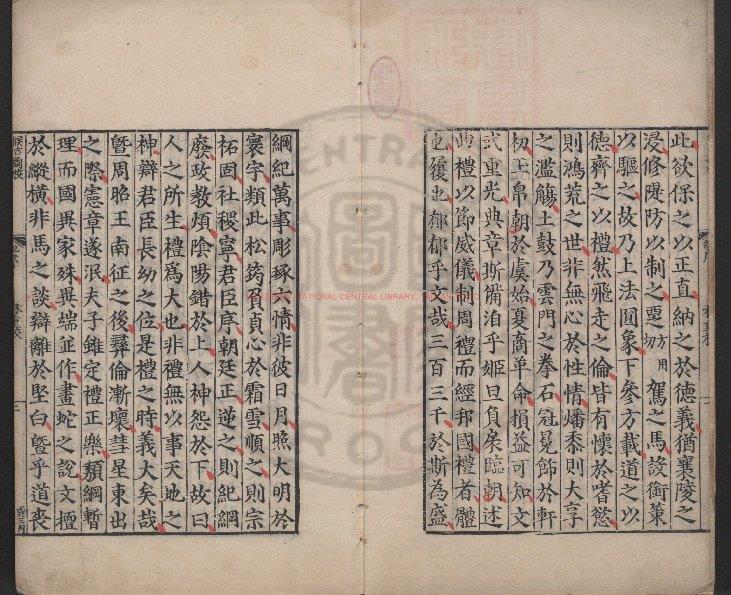 此欲保之以正直納之於德義猶襄陵之
浸修隄防以制之覂方用切駕之馬設銜策
以驅之故乃上法圓象下參方載道之以
德齊之以禮然飛走之倫皆有懷於嗜慾
則鴻荒之世非無心於性情燔黍則大享
之濫觴土鼓乃雲門之拳石冠冕飾於軒
初玉帛朝於虞始夏商革命損益可知文
武重光典章斯備洎乎姬旦負扆臨朝述
曲禮以節威儀制周禮而經邦國禮者體
也履也郁郁乎文哉三百三千於斯為盛
綱紀萬事彫琢六情非彼日月照大明於
寰宇類此松筠負貞心於霜雪順之則宗
祏固社稷寧君臣序朝廷正逆之則紀綱
廢政教煩陰陽錯於上人神怨於下故曰
人之所生禮爲大也非禮無以事天地之
神辯君臣長幼之位是禮之時義大矣哉
暨周昭王南征之後彝倫漸壞彗星東出
之際憲章遂泯夫子雖定禮正樂頹綱暫
理而國異家殊異端並作畫蛇之說文擅
於縱橫非馬之談辯離於堅白暨乎道喪
NATIONAL CENTRAL LIBRARY,